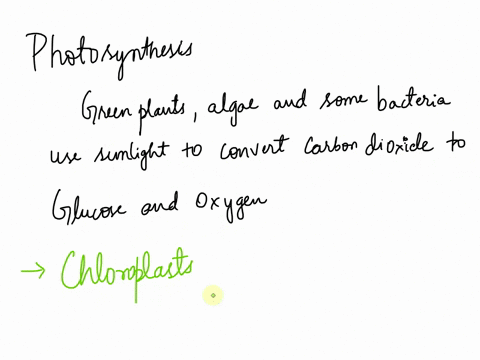 Photosynthesis
Green plants, algae and some bacteria
use sunlight to convert Carbon dioxide to
Glucose and Oxygen
→ Chloroplasts